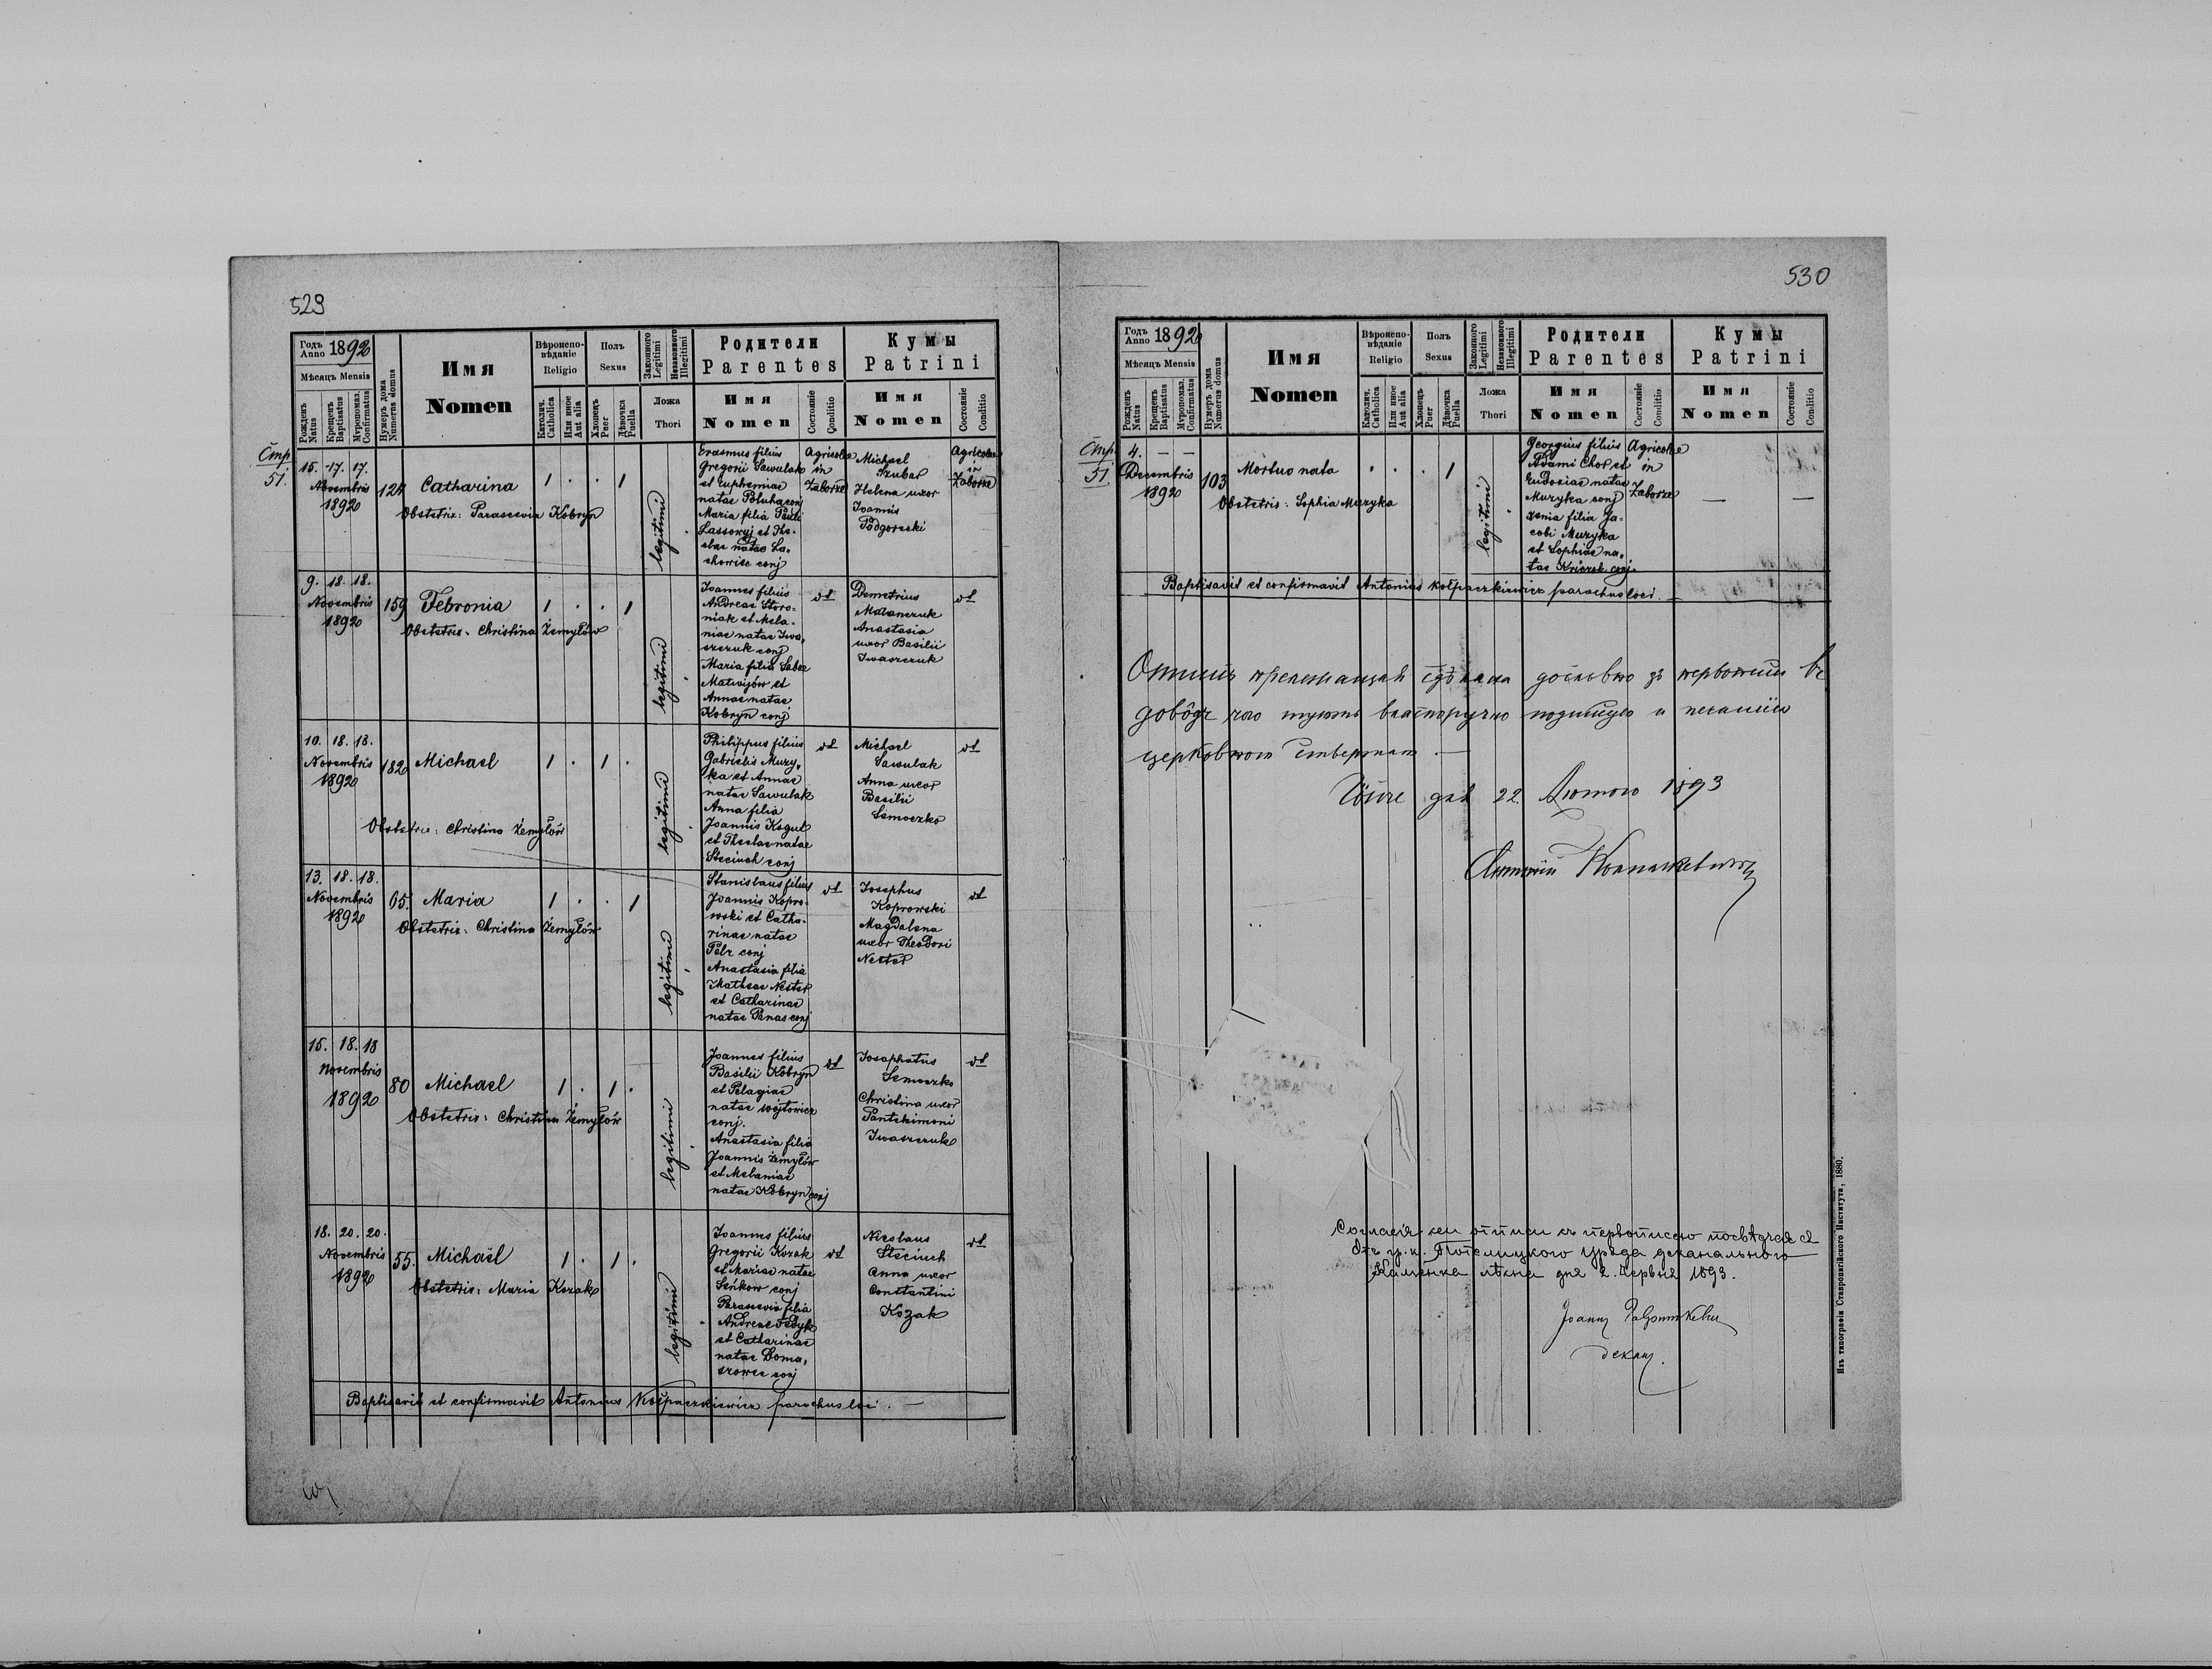 529
Годъ Anno 1892
Мѣсяцъ Mensis
Рожденъ Natus
Крещенъ Baptisatus
Мѵропомаз. Confirmatus
Нумеръ дома Numerus domus
Имя
Nomen
Вѣроиспо-
вѣданіе
Religio
Католич. Catholica
Или иное Aut alia
Полъ
Sexus
Хлопецъ Puer
Дѣвочка Puella
Законного Legitimi
Незаконного Illegitimi
Ложа
Thori
Родители
Parentes
Имя
Nomen
Состояніе Conditio
Кумы
Patrini
Имя
Nomen
Состояніе Conditio
Стр.
51.
15. 17. 17.
Novembris
1892
124
Catharina
Obstetrix: Parascevia Kobryn
1 . . 1
legitimi
Erasmus filius
Gregorii Sawulak
et Euphemiae
natae Poluha conj
Maria filia Pauli
Lassowyj et The-
clae natae La-
chowicz conj
Agricolae
in
Zaborze
Michael
Szubar
Helena uxor
Joannis
Podgorecki
Agricolae
in
Zaborze
9. 18. 18.
Novembris
1892
159
Febronia
Obstetrix: Christina Żemyłów
1 . . 1
legitimi
Joannes filius
Andreae Storo-
niak et Mela-
niae natae Iwa-
szczuk conj
Maria filia Sabae
Matwijów et
Annae natae
Kobryn conj
dt
Demetrius
Malanczuk
Anastasia
uxor Basilii
Iwaszczuk
dt
10. 18. 18.
Novembris
1892
182
Michael
Obstetrix: Christina Żemyłów
1 . 1 .
legitimi
Philippus filius
Gabrielis Muzy-
ka et Annae
natae Sawulak
Anna filia
Joannis Kogut
et Theclae natae
Steciuch conj
dt
Michael
Sawulak
Anna uxor
Basilii
Semoczko
dt
13. 18. 18.
Novembris
1892
65
Maria
Obstetrix: Christina Żemyłów
1 . . 1
legitimi
Stanislaus filius
Joannis Kopro-
wski et Catha-
rinae natae
Pelz conj
Anastasia filia
Mathiae Nester
et Catharinae
natae Panas conj
dt
Josephus
Koprowski
Magdalena
uxor Theodori
Nester
dt
15. 18. 18
Novembris
1892
80
Michael
Obstetrix: Christina Żemyłów
1 . 1 .
legitimi
Joannes filius
Basilii Kobryn
et Pelagiae
natae Wojtowicz
conj.
Anastasia filia
Joannis Żemyłów
et Melaniae
natae Kobryn conj
dt
Josaphatus
Semoczko
Christina uxor
Pantelimoni
Iwaszczuk
dt
18. 20. 20.
Novembris
1892
55.
Michaël
Obstetrix: Maria Kozak
1 . 1 .
legitimi
Joannes filius
Gregorii Kozak
et Mariae natae
Seńkow conj
Parascevia filia
Andreae Fedyk
et Catharinae
natae Doma-
szowec conj
dt
Nicolaus
Steciuch
Anna uxor
Constantini
Kozak
dt
Baptisavit et confirmavit Antonius Kołpaczkiewicz parochus loci. —
530
Годъ Anno 1892
Мѣсяцъ Mensis
Рожденъ Natus
Крещенъ Baptisatus
Мѵропомаз. Confirmatus
Нумеръ дома Numerus domus
Имя
Nomen
Вѣроиспо-
вѣданіе
Religio
Католич. Catholica
Или иное Aut alia
Полъ
Sexus
Хлопецъ Puer
Дѣвочка Puella
Законного Legitimi
Незаконного Illegitimi
Ложа
Thori
Родители
Parentes
Имя
Nomen
Состояніе Conditio
Кумы
Patrini
Имя
Nomen
Состояніе Conditio
Стр.
51
4. — —
Decembris
1892
103
Mortuo nata
Obstetrix: Sophia Muzyka
. . . 1
legitimi
Georgius filius
Adami Chor et
Eudoxiae natae
Muzyka conj
Xenia filia Ja-
cobi Muzyka
et Sophiae na-
tae Kriczok conj.
Agricolae
in
Zaborze
—
—
Baptisavit et confirmavit Antonius Kołpaczkiewicz parochus loci. —
дословно зъ
доводъ чого власноручно подписую и
церковною —
дня 22. Лютого 1893
Антоній Колпачкевичъ
Согласія сеи отписи съ первописею посвѣдчае ся
Отъ гр. к. Потелицкого Уряда деканального
Каменка лѣсна дня 2. Червня 1893.
декан.
Изъ типографіи Ставропигійского Института, 1880.